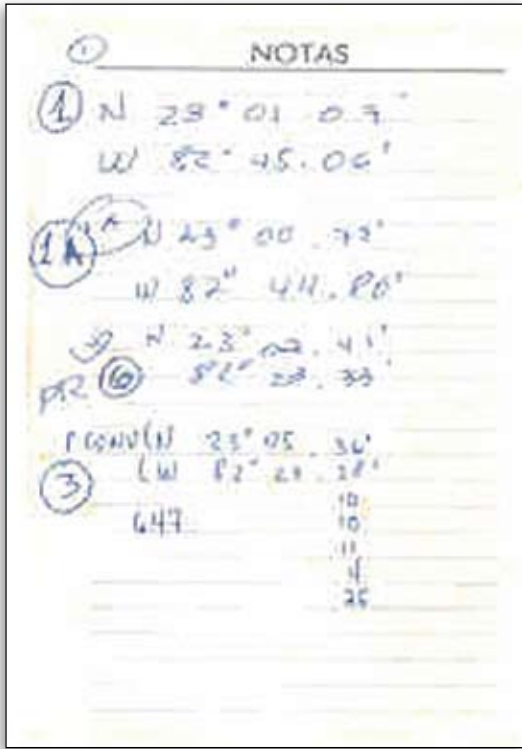 1 NOTAS
1 N 23° 01 . 07'
W 82° 45.06'
1A N 23° 00 . 72'
W 82° 44.80'
N 23° 02 . 41'
6 82° 23 . 33'
P CONV (N 23° 05 . 36'
3 (W 82° 28'
647 10
10
11
4